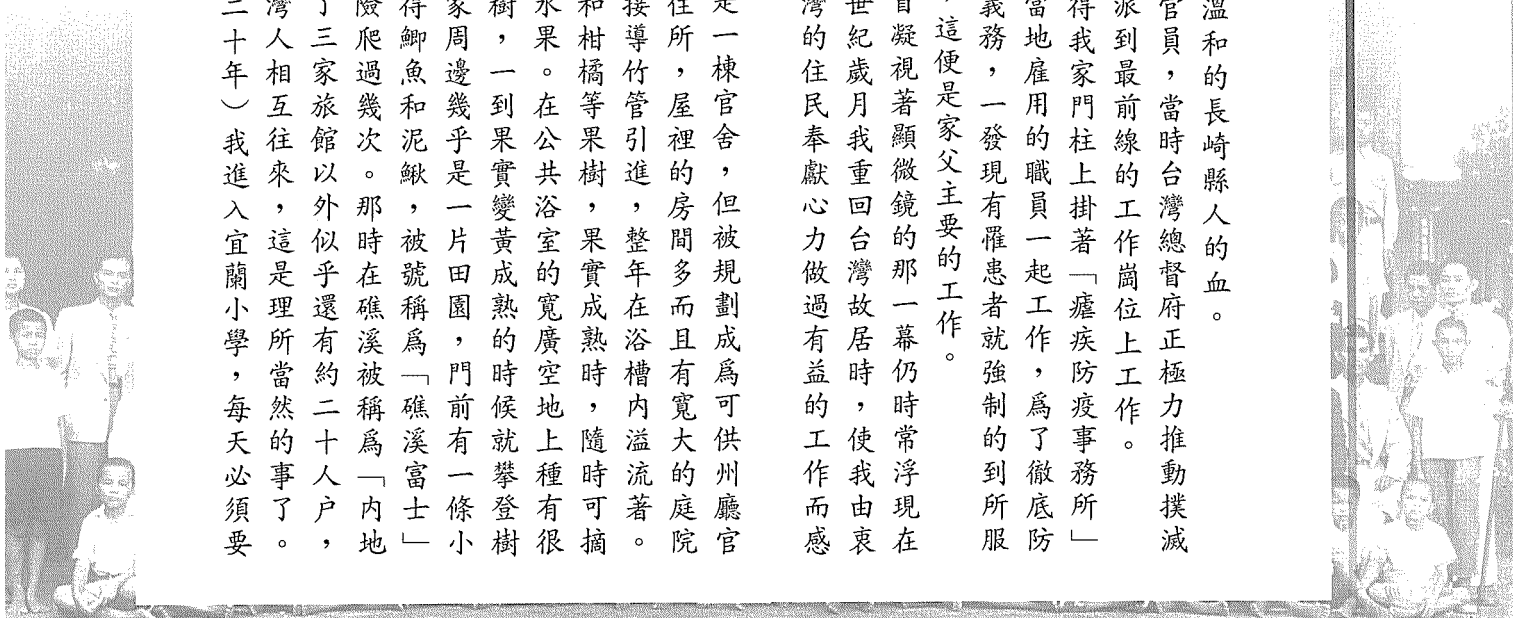 溫和的長崎縣人的血。
官員，當時台灣總督府正極力推動撲滅
派到最前線的工作崗位上工作。
得我家門柱上掛著「瘧疾防疫事務所」
當地雇用的職員一起工作，爲了徹底防
義務，一發現有罹患者就強制的到所服
，這便是家父主要的工作。
凝視著顯微鏡的那一幕仍時常浮現在
世紀歲月我重回台灣故居時，使我由衷
灣的住民奉獻心力做過有益的工作而感
一棟官舍，但被規劃成爲可供州廳官
住所，屋裡的房間多而且有寬大的庭院
接導竹管引進，整年在浴槽內溢流著。
和柑橘等果樹，果實成熟時，隨時可摘
水果。在公共浴室的寬廣空地上種有很
樹，一到果實變黃成熟的時候就攀登樹
家周邊幾乎是一片田園，門前有一條小
得鯽魚和泥鰍，被號稱爲「礁溪富士」
險爬過幾次。那時在礁溪被稱爲「內地
了三家旅館以外似乎還有約二十人户，
灣人相互往來，這是理所當然的事了。
二十年）我進入宜蘭小學，每天必須要